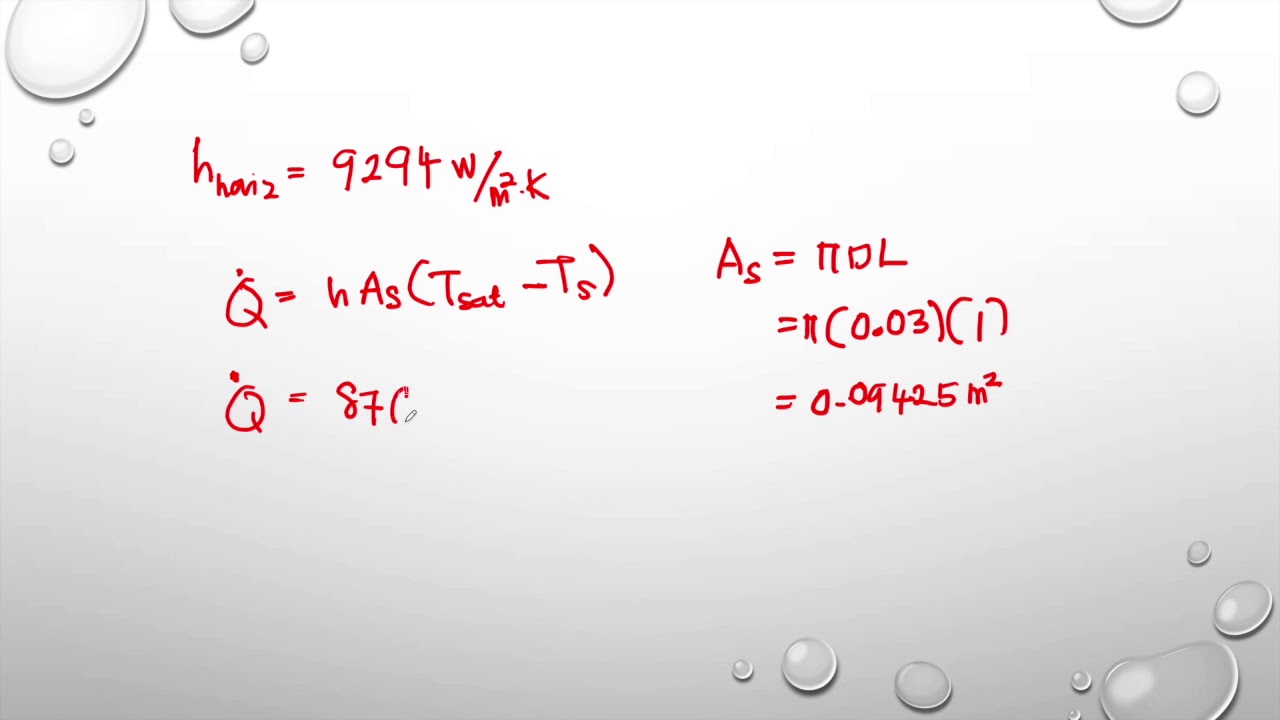 h_horiz = 9294 W/m²·K
Q̇ = hAs(Tsat − Ts)
Q̇ = 87
As = πDL
= π(0.03)(1)
= 0.09425 m²